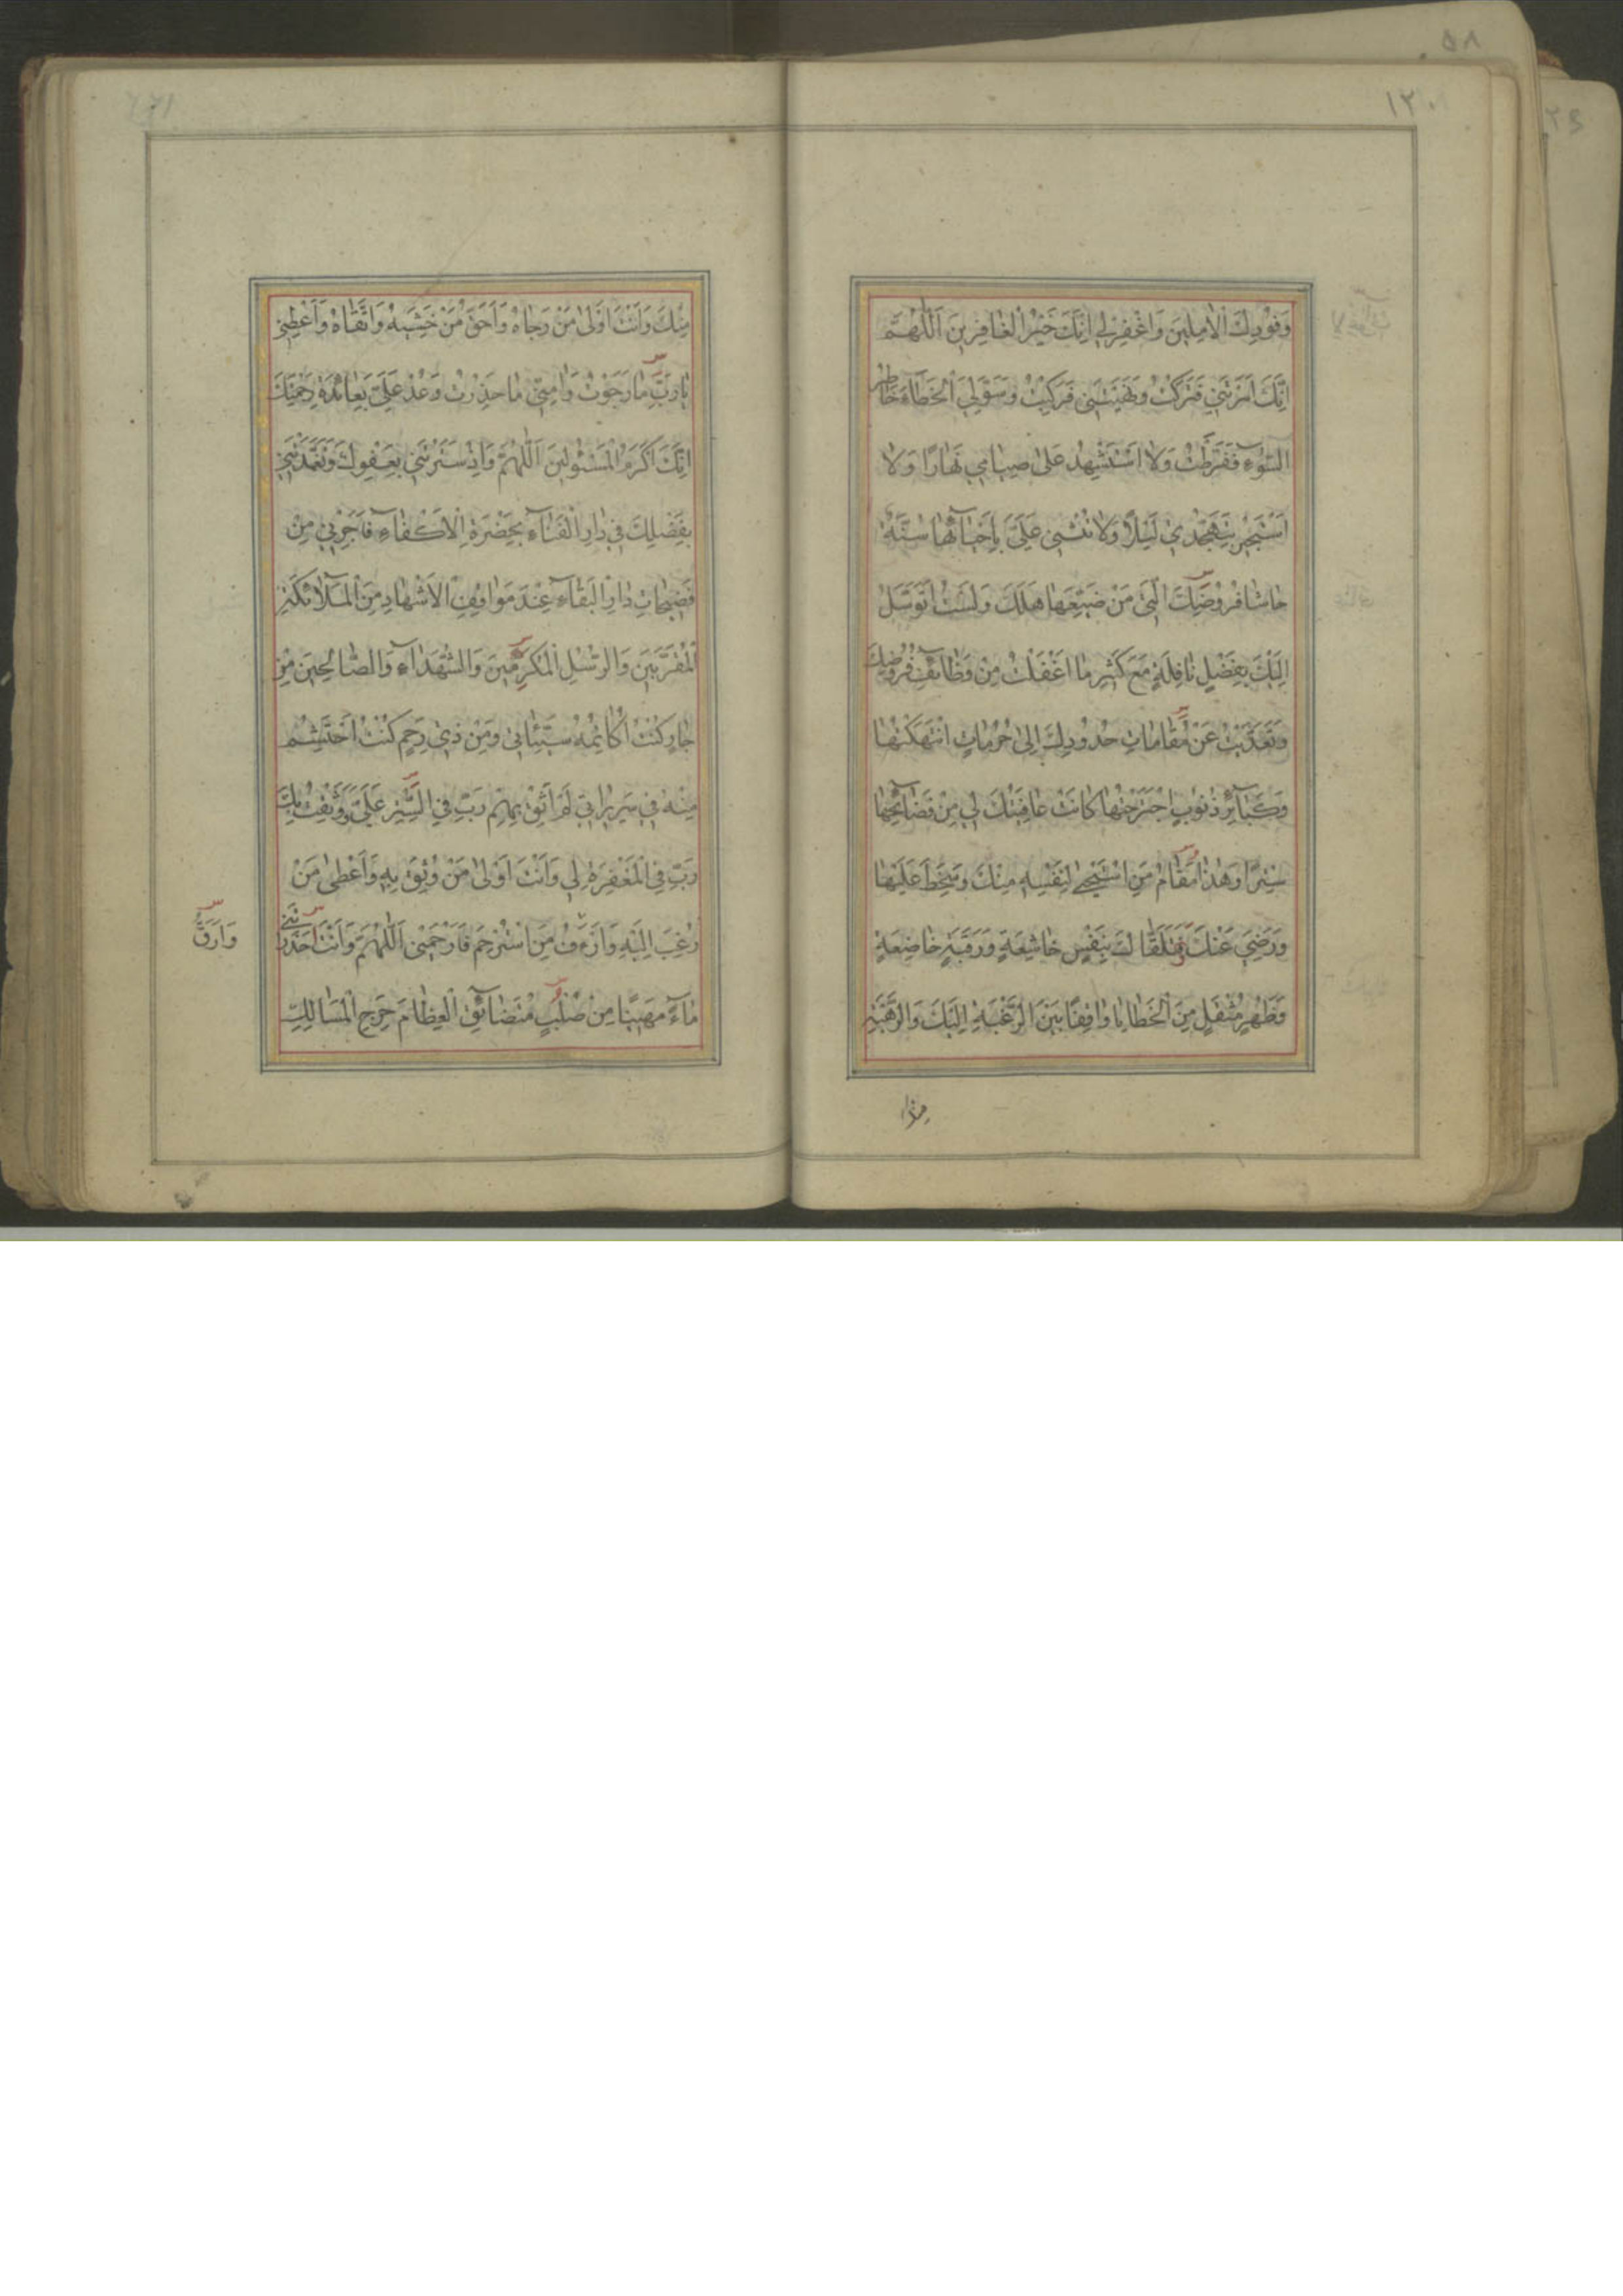 ١٢٠
وَفُودِكَ الْاٰمِلينَ وَاغْفِرْ لي اِنَّكَ خَيْرُ الْغٰافِرينَ اَللّٰهُمَّ
اِنَّكَ اَمَرْتَني فَتَرَكْتُ وَنَهَيْتَني فَرَكِبْتُ وَسَوَّلَ لِيَ الْخَطَاۤءَ خٰاطِرُ
السُّوۤءِ فَفَرَّطْتُ وَلا اَسْتَشْهِدُ عَلىٰ صِيٰامي نَهٰارًا وَلا
اَسْتَجيرُ بِتَهَجُّدي لَيْلًا وَلا تُثْني عَلَيَّ بِاِحْيٰاۤئِهٰا سُنَّةٌ
حٰاشٰا فُرُوضِكَ الَّتي مَنْ ضَيَّعَهٰا هَلَكَ وَلَسْتُ اَتَوَسَّلُ
اِلَيْكَ بِفَضْلِ نٰافِلَةٍ مَعَ كَثيرِ مٰا اَغْفَلْتُ مِنْ وَظٰاۤئِفِ فُرُوضِكَ
وَتَعَدَّيْتُ عَنْ مَقٰامٰاتِ حُدُودِكَ اِلىٰ حُرُمٰاتٍ انْتَهَكْتُهٰا
وَكَبٰاۤئِرِ ذُنُوبٍ اجْتَرَحْتُهٰا كٰانَتْ عٰافِيَتُكَ لي مِنْ فَضٰاۤئِحِهٰا
سِتْرًا وَهٰذٰا مَقٰامُ مَنِ اسْتَحْيٰى لِنَفْسِهِ مِنْكَ وَسَخِطَ عَلَيْهٰا
وَرَضِيَ عَنْكَ فَتَلَقّٰاكَ بِنَفْسٍ خٰاشِعَةٍ وَرَقَبَةٍ خٰاضِعَةٍ
وَظَهْرٍ مُثْقَلٍ مِنَ الْخَطٰايٰا وٰاقِفًا بَيْنَ الرَّغْبَةِ اِلَيْكَ وَالرَّهْبَةِ
مِنْكَ وَاَنْتَ اَوْلىٰ مَنْ رَجٰاهُ وَاَحَقُّ مَنْ خَشِيَهُ وَاتَّقٰاهُ وَاَعْطِني
يٰا رَبِّ مٰا رَجَوْتُ وَاٰمِنّي مٰا حَذِرْتُ وَعُدْ عَلَيَّ بِعٰاۤئِدَةِ رَحْمَتِكَ
اِنَّكَ اَكْرَمُ الْمَسْئُولينَ اَللّٰهُمَّ وَاِذْ سَتَرْتَني بِعَفْوِكَ وَتَغَمَّدْتَني
بِفَضْلِكَ في دٰارِ الْفَنٰاۤءِ بِحَضْرَةِ الْاَكْفٰاۤءِ فَاَجِرْني مِنْ
فَضيحٰاتِ دٰارِ الْبَقٰاۤءِ عِنْدَ مَوٰاقِفِ الْاَشْهٰادِ مِنَ الْمَلاۤئِكَةِ
الْمُقَرَّبينَ وَالرُّسُلِ الْمُكَرَّمينَ وَالشُّهَدٰاۤءِ وَالصّٰالِحينَ مِنْ
جٰارٍ كُنْتُ اُكٰاتِمُهُ سَيِّئٰاتي وَمِنْ ذي رَحِمٍ كُنْتُ اَحْتَشِمُ
مِنْهُ في سَريرٰاتي لَمْ اَثِقْ بِهِمْ رَبِّ فِي السِّتْرِ عَلَيَّ وَوَثِقْتُ بِكَ
رَبِّ فِي الْمَغْفِرَةِ لي وَاَنْتَ اَوْلىٰ مَنْ وُثِقَ بِهِ وَاَعْطىٰ مَنْ
رُغِبَ اِلَيْهِ وَاَرْءَفُ مَنِ اسْتُرْحِمَ فَارْحَمْني اَللّٰهُمَّ وَاَنْتَ اَحْدَرْتَني
مٰاۤءً مَهينًا مِنْ صُلْبٍ مُتَضٰاۤئِقِ الْعِظٰامِ حَرِجِ الْمَسٰالِكِ
وَاَرَقُّ